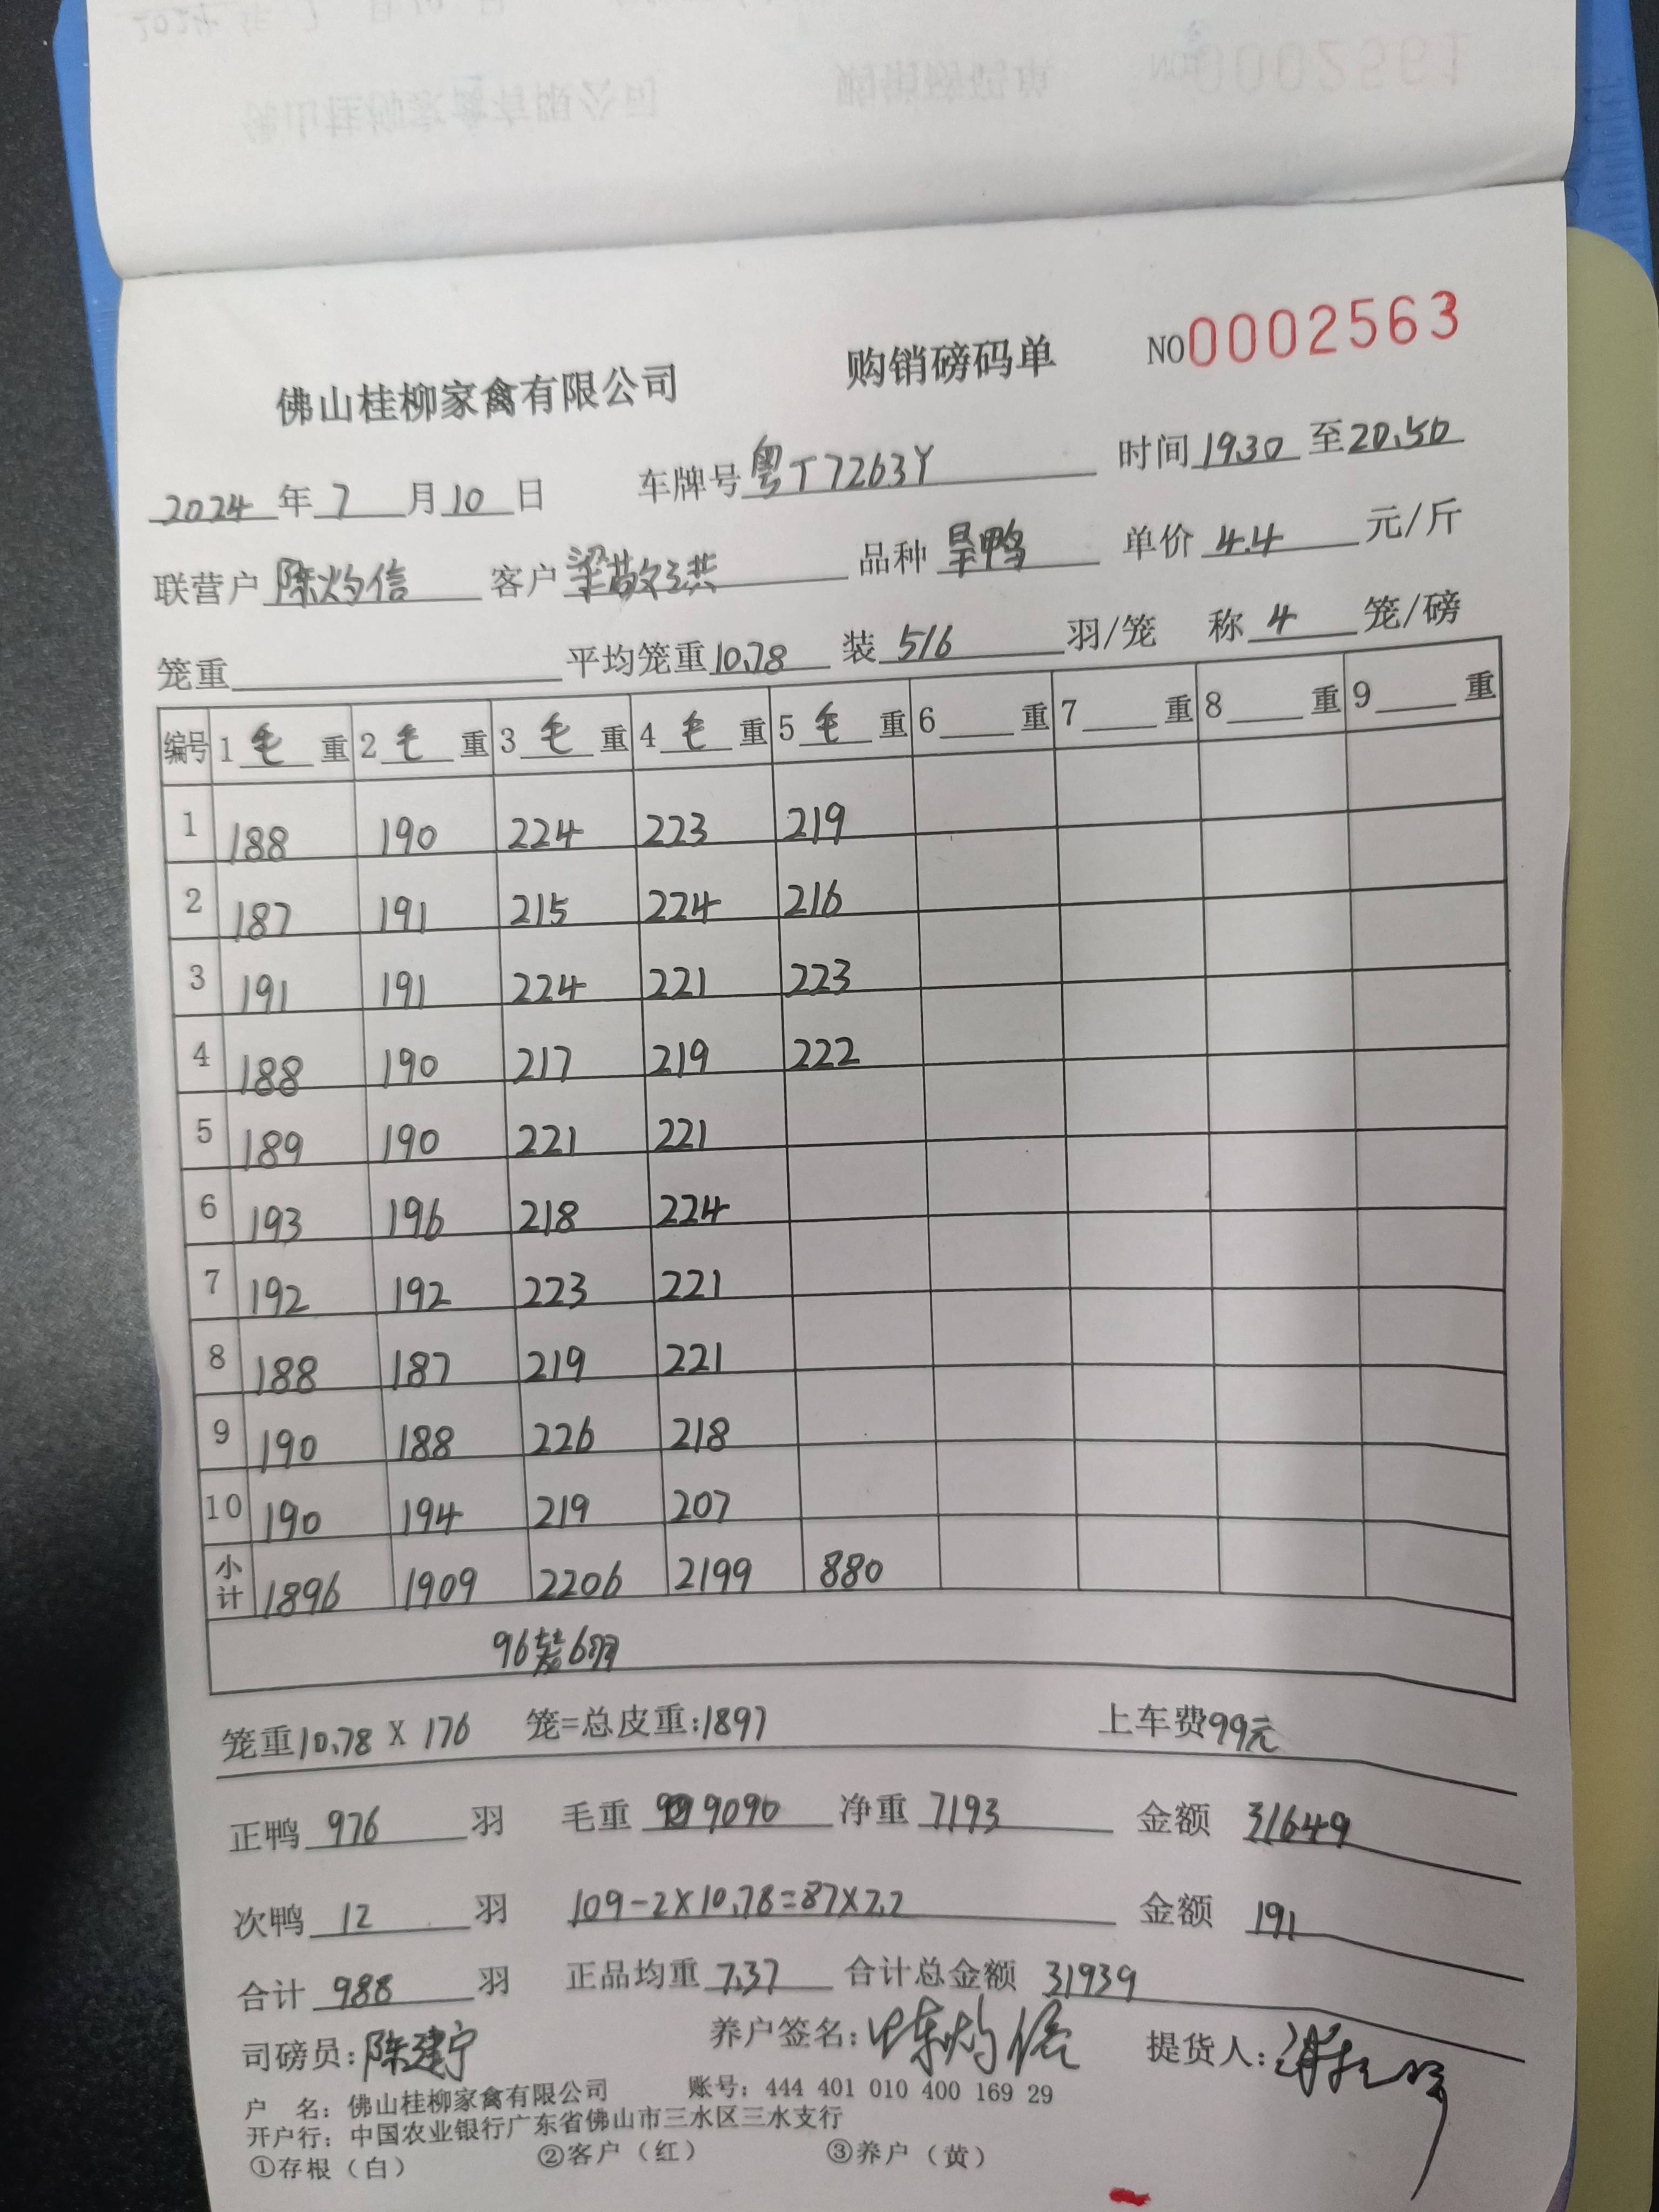 佛山桂柳家禽有限公司 购销磅码单 NO0002563
2024年7月10日 车牌号粤T7263Y 时间19.30至20.50
联营户陈灼信 客户梁敬洪 品种旱鸭 单价4.4元/斤
笼重 平均笼重10.78 装5/6羽/笼 称4笼/磅
编号 1毛重 2毛重 3毛重 4毛重 5毛重 6重 7重 8重 9重
1 188 190 224 223 219
2 187 191 215 224 216
3 191 191 224 221 223
4 188 190 217 219 222
5 189 190 221 221
6 193 196 218 224
7 192 192 223 221
8 188 187 219 221
9 190 188 226 218
10 190 194 219 207
小计 1896 1909 2206 2199 880
96装6羽
笼重10.78X176笼=总皮重:1897 上车费99元
正鸭976羽 毛重9090 净重7193 金额31649
次鸭12羽 109-2X10.78=87X2.2 金额191
合计988羽 正品均重7.37 合计总金额31939
司磅员:陈建宁 养户签名:陈灼信 提货人:
户 名: 佛山桂柳家禽有限公司 账号: 444 401 010 400 169 29
开户行: 中国农业银行广东省佛山市三水区三水支行
①存根(白) ②客户(红) ③养户(黄)